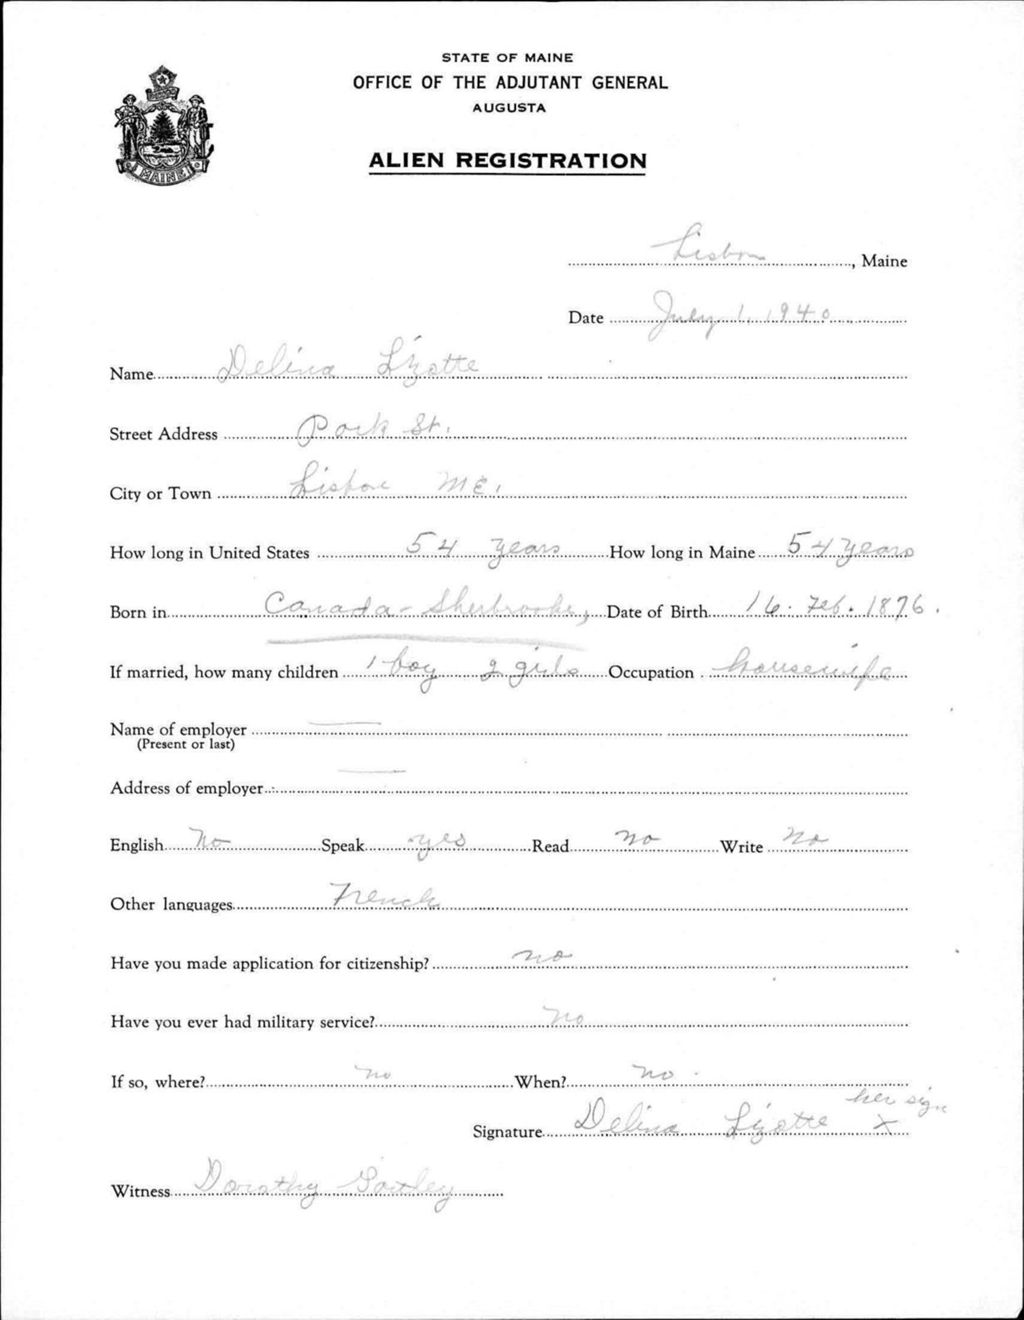 STATE OF MAINE
OFFICE OF THE ADJUTANT GENERAL
AUGUSTA
MAINE
ALIEN REGISTRATION
Lisbon, Maine
Date July 1, 1940
Name Delina Lizotte
Street Address Park St.
City or Town Lisbon ME.
How long in United States 54 years How long in Maine 54 years
Born in Canada - Sherbrooke, Date of Birth 16. Feb. 1876.
If married, how many children 1 boy 2 girls Occupation housewife
Name of employer
(Present or last)
Address of employer
English No Speak yes Read No Write No
Other languages French
Have you made application for citizenship? no
Have you ever had military service? No
If so, where? no When? no
her sign
Signature Delina Lizotte X
Witness Dorothy